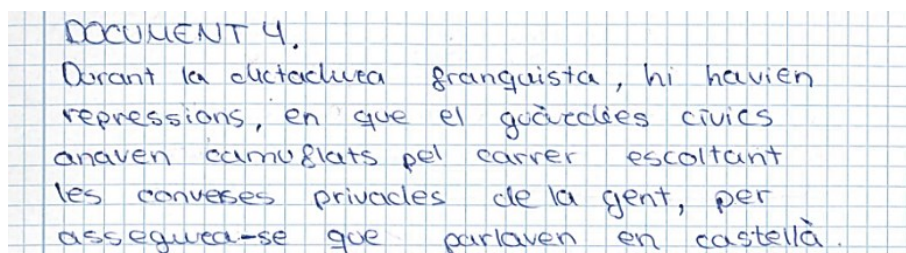 DOCUMENT 4.
Durant la dictadura franquista, hi havien
repressions, en que el guàrdies civics
anaven camuflats pel carrer escoltant
les converses privades de la gent, per
assegurar-se que parlaven en castellà.